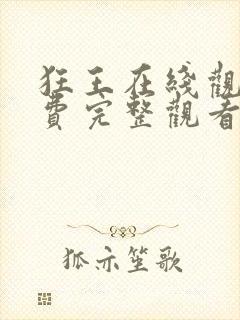 狂王在线觀
費完整觀看
狐亦笙歌